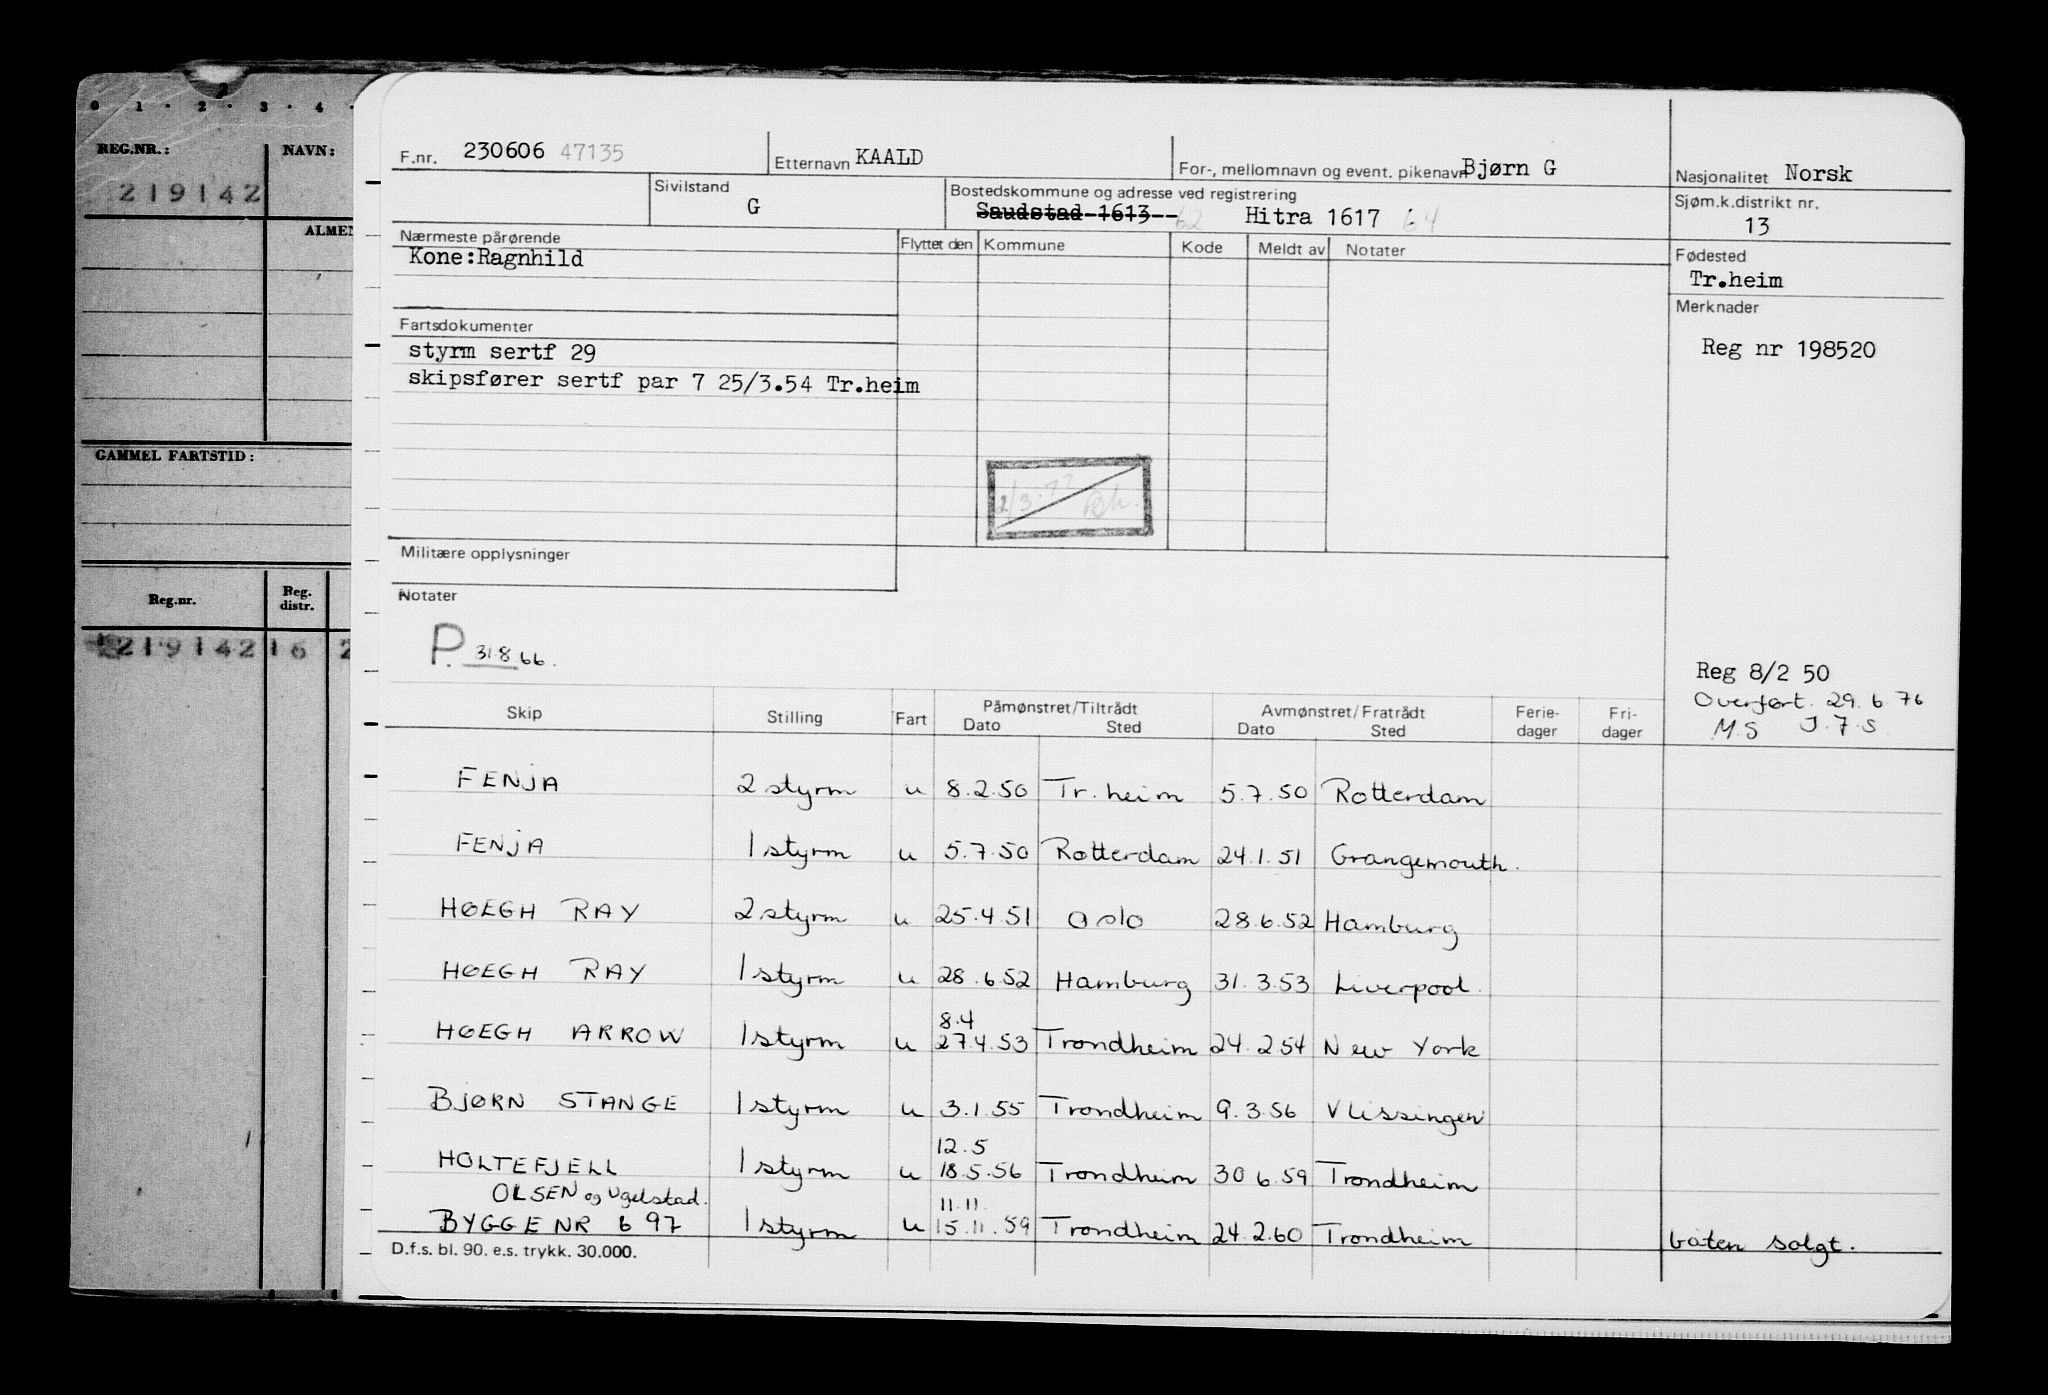 0 · 1 · 2 · 3 · 4 ·
2
REG.NR.:
NAVN:
219142
ALMEN
GAMMEL FARTSTID:
Reg.nr.
Reg. distr.
219142 16 2
F.nr. 230606 47135
Etternavn KAALD
For-, mellomnavn og event. pikenavn Bjørn G
Nasjonalitet Norsk
Sivilstand
G
Bostedskommune og adresse ved registrering
Saudstad 1613-- 62 Hitra 1617 64
Sjøm.k.distrikt nr.
13
Nærmeste pårørende
Kone:Ragnhild
Flyttet den
Kommune
Kode
Meldt av
Notater
Fødested
Tr.heim
Merknader
Reg nr 198520
Fartsdokumenter
styrm sertf 29
skipsfører sertf par 7 25/3.54 Tr.heim
2/3.77 Bh.
Militære opplysninger
Notater
P. 31.8 66.
Reg 8/2 50
Overført. 29.6.76
M.S J.F.S
Skip Stilling Fart Påmønstret/Tiltrådt Dato Sted Avmønstret/Fratrådt Dato Sted Ferie-dager Fri-dager
FENJA 2 styrm u 8.2.50 Tr.heim 5.7.50 Rotterdam
FENJA 1 styrm u 5.7.50 Rotterdam 24.1.51 Grangemouth.
HØEGH RAY 2 styrm u 25.4.51 Oslo 28.6.52 Hamburg
HØEGH RAY 1 styrm u 28.6.52 Hamburg 31.3.53 Liverpool.
8.4
HØEGH ARROW 1 styrm u 27.4.53 Trondheim 24.2.54 New York
BJØRN STANGE 1 styrm u 3.1.55 Trondheim 9.3.56 Vlissingen
12.5
HOLTEFJELL 1 styrm u 18.5.56 Trondheim 30 6.59 Trondheim
OLSEN og Ugelstad. 11.11.
BYGGENR 697 1 styrm u 15.11.59 Trondheim 24.2.60 Trondheim båten solgt.
D.f.s. bl. 90. e.s. trykk. 30.000.